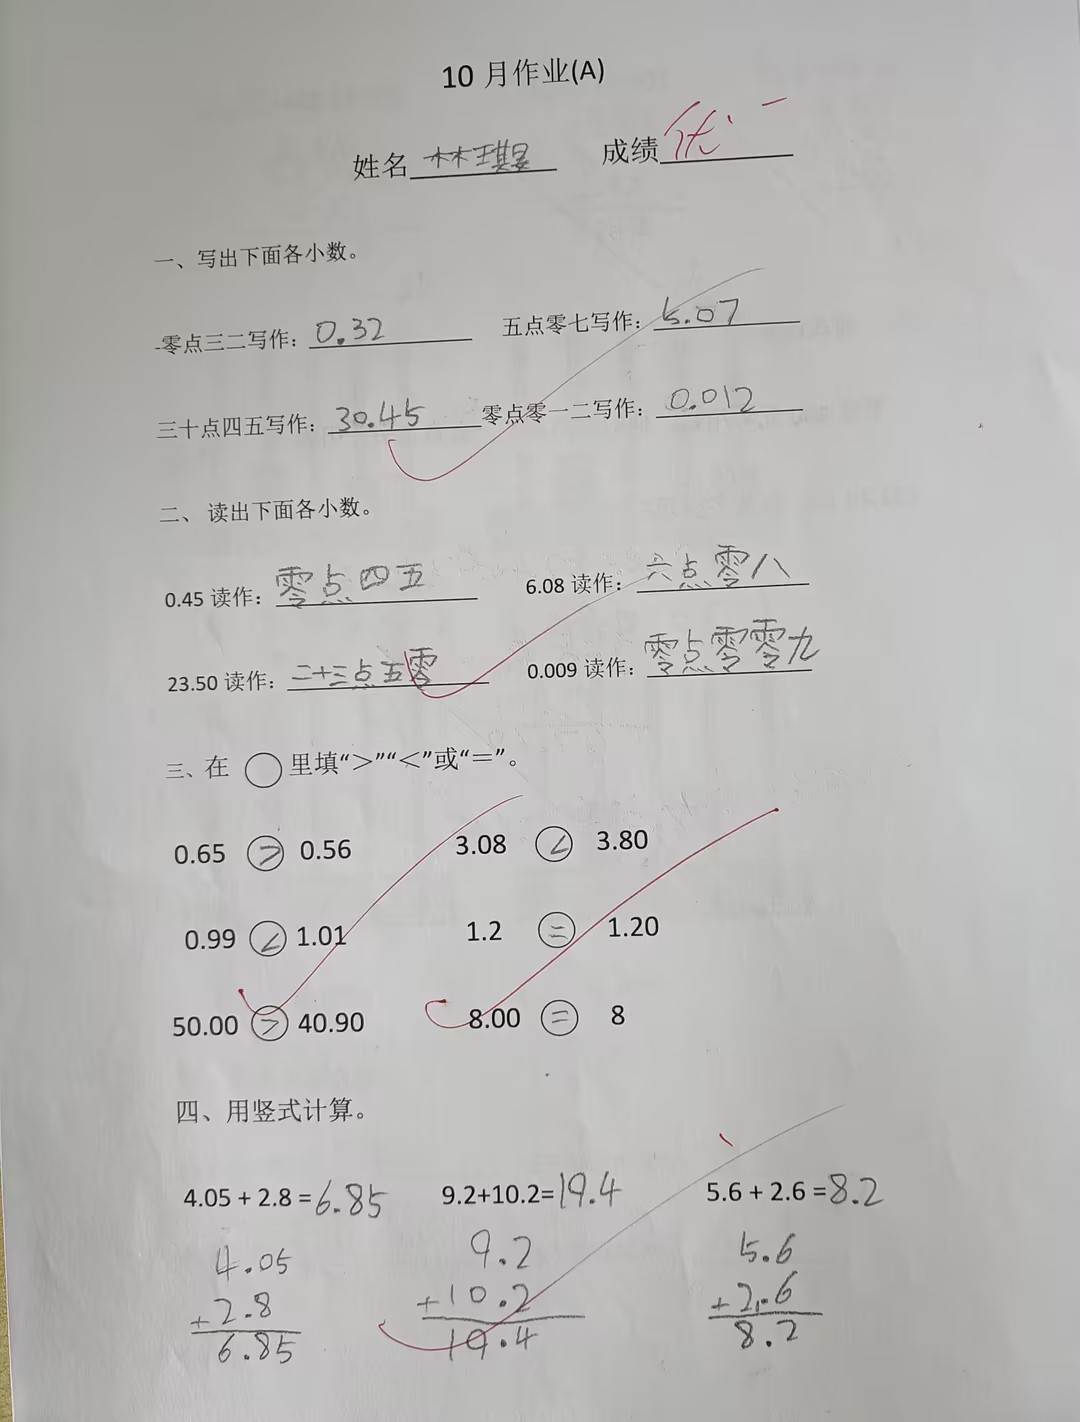 10 月作业(A)
姓名 林琪晏 成绩 优-
一、写出下面各小数。
零点三二写作：0.32 五点零七写作：5.07
三十点四五写作：30.45 零点零一二写作：0.012
二、读出下面各小数。
0.45 读作：零点四五 6.08 读作：六点零八
23.50 读作：二十三点五零 0.009 读作：零点零零九
三、在 ○ 里填“＞”“＜”或“＝”。
0.65 > 0.56 3.08 < 3.80
0.99 < 1.01 1.2 = 1.20
50.00 > 40.90 8.00 = 8
四、用竖式计算。
4.05 + 2.8 = 6.85 9.2+10.2= 19.4 5.6 + 2.6 = 8.2
4.05 9.2 5.6
+2.8 +10.2 +2.6
6.85 19.4 8.2